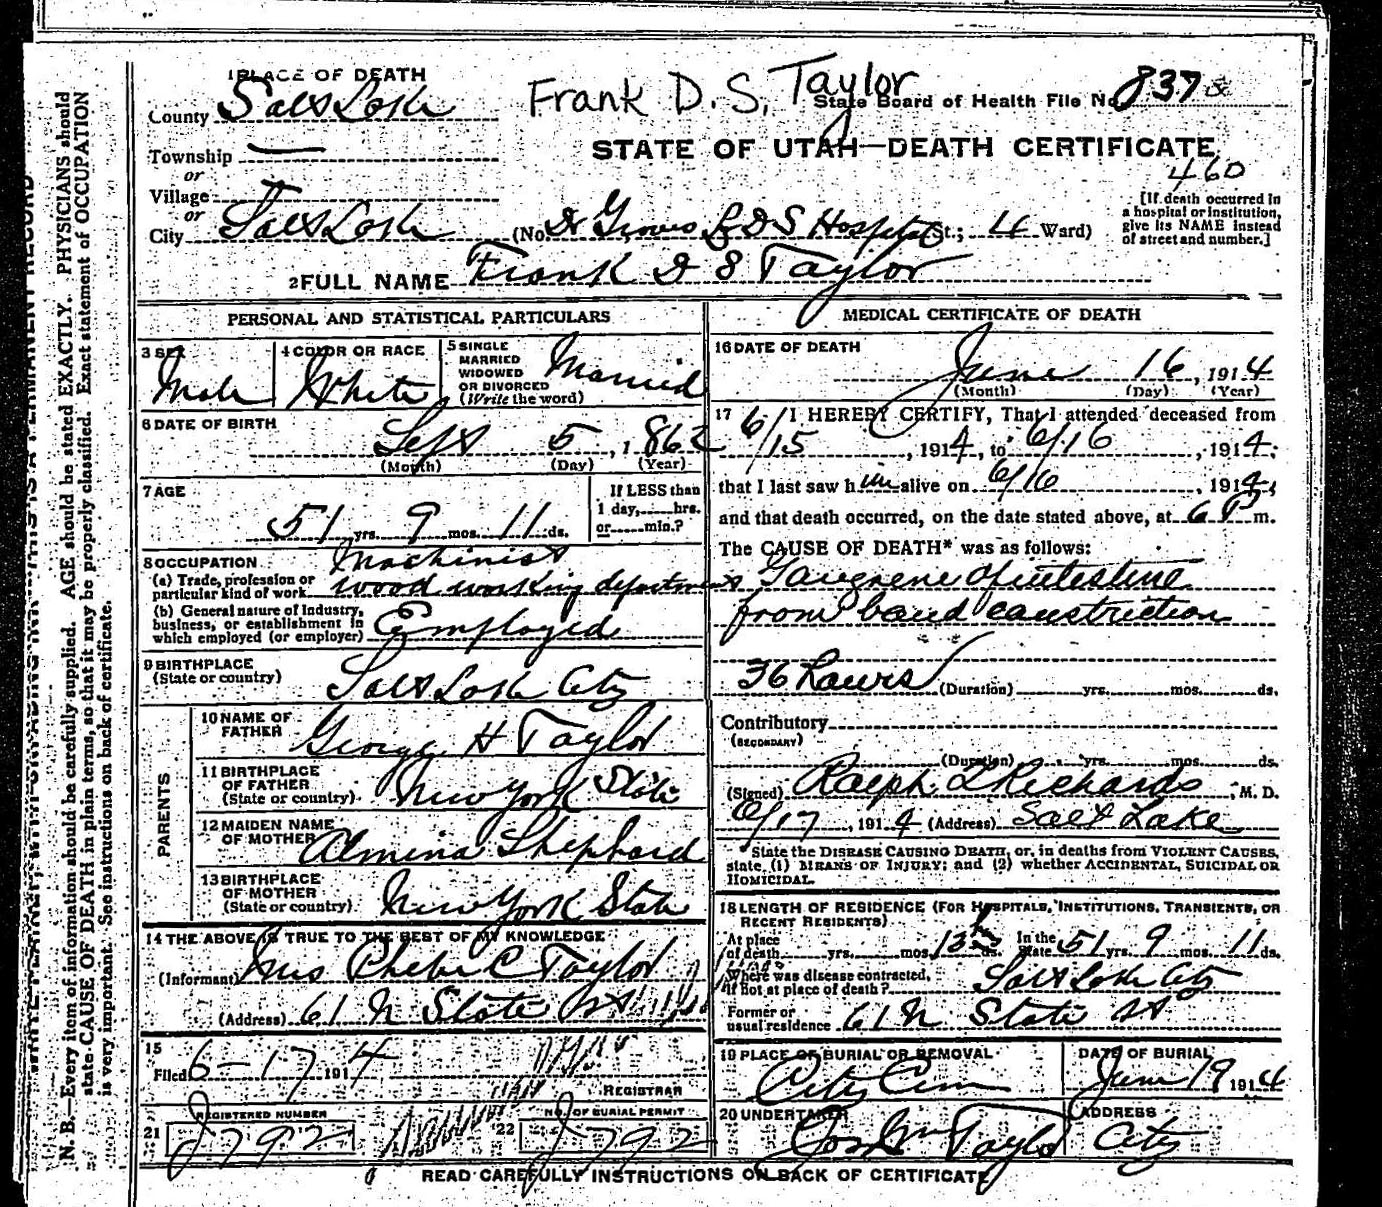 Frank D. S. Taylor
1 PLACE OF DEATH
State Board of Health File No. 837
County Salt Lake
STATE OF UTAH—DEATH CERTIFICATE
460
Township
or
Village
or
City Salt Lake (No. Dr Groves L D S Hospital St.; 4 Ward)
[If death occurred in
a hospital or institution,
give its NAME instead
of street and number.]
2 FULL NAME Frank D S Taylor
PERSONAL AND STATISTICAL PARTICULARS
3 SEX
Male
4 COLOR OR RACE
White
5 SINGLE
MARRIED
WIDOWED
OR DIVORCED
(Write the word)
Married
6 DATE OF BIRTH
Sept 5, 1862
(Month) (Day) (Year)
7 AGE
51 yrs. 9 mos. 11 ds.
If LESS than
1 day, hrs.
or min.?
8 OCCUPATION
(a) Trade, profession or
particular kind of work
Machinist
wood working department
(b) General nature of Industry,
business, or establishment in
which employed (or employer)
Employed
9 BIRTHPLACE
(State or country)
Salt Lake City
PARENTS
10 NAME OF
FATHER
George H Taylor
11 BIRTHPLACE
OF FATHER
(State or country)
New York State
12 MAIDEN NAME
OF MOTHER
Almina Shephard
13 BIRTHPLACE
OF MOTHER
(State or country)
New York State
14 THE ABOVE IS TRUE TO THE BEST OF MY KNOWLEDGE
(Informant) Mrs Phebe C Taylor
(Address) 61 N State St
15
Filed 6-17 1914
REGISTRAR
REGISTERED NUMBER
21 J792
NO. OF BURIAL PERMIT
22 J792
MEDICAL CERTIFICATE OF DEATH
16 DATE OF DEATH
June 16, 1914
(Month) (Day) (Year)
17 I HEREBY CERTIFY, That I attended deceased from
6/15, 1914, to 6/16, 1914,
that I last saw him alive on 6/16, 1914,
and that death occurred, on the date stated above, at 6 P m.
The CAUSE OF DEATH* was as follows:
Gangrene of intestine
from band constriction
36 hours (Duration) yrs. mos. ds.
Contributory
(SECONDARY)
(Duration) yrs. mos. ds.
(Signed) Ralph T Richards, M. D.
6/17, 1914 (Address) Salt Lake
*State the DISEASE CAUSING DEATH, or, in deaths from VIOLENT CAUSES,
state (1) MEANS OF INJURY; and (2) whether ACCIDENTAL, SUICIDAL OR
HOMICIDAL.
18 LENGTH OF RESIDENCE (FOR HOSPITALS, INSTITUTIONS, TRANSIENTS, OR
RECENT RESIDENTS)
At place
of death yrs. mos. ds.
In the
State 51 yrs. 9 mos. 11 ds.
Where was disease contracted,
if not at place of death? Salt Lake City
Former or
usual residence 61 N State St
19 PLACE OF BURIAL OR REMOVAL
City Cem
DATE OF BURIAL
June 19 1914
20 UNDERTAKER
Jos Wm Taylor
ADDRESS
City
READ CAREFULLY INSTRUCTIONS ON BACK OF CERTIFICATE
N. B.—Every item of information should be carefully supplied. AGE should be stated EXACTLY. PHYSICIANS should
state CAUSE OF DEATH in plain terms, so that it may be properly classified. Exact statement of OCCUPATION
is very important. See instructions on back of certificate.